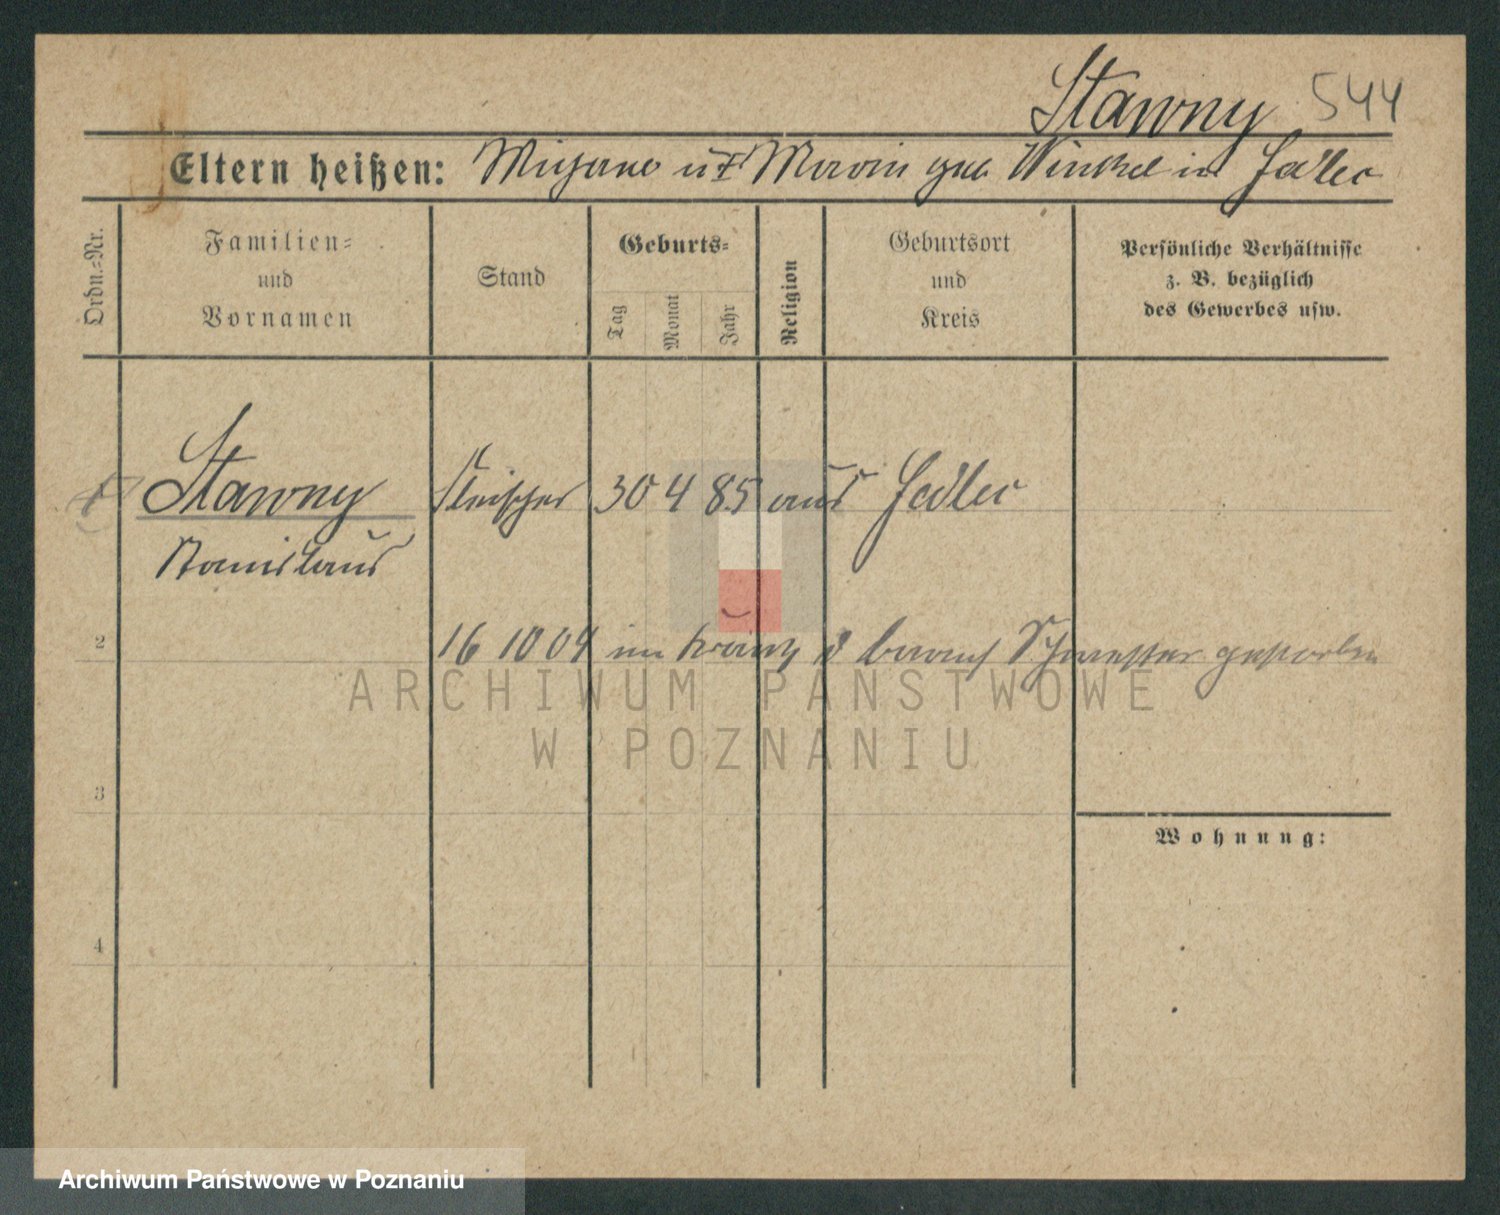 Stawny 544
Eltern heißen: Michael und Maria geb. Winkel in Jedlec
Ordn.-Nr.
Familien-
und
Vornamen
Stand
Geburts-
Tag
Monat
Jahr
Religion
Geburtsort
und
Kreis
Persönliche Verhältnisse
z. B. bezüglich
des Gewerbes usw.
1 Stawny Fleischer 30 4 85 aus Jedlec
Stanislaus
2 16 10 04 im Schwester gestorben
ARCHIWUM PAŃSTWOWE
W POZNANIU
3
Wohnung:
4
Archiwum Państwowe w Poznaniu